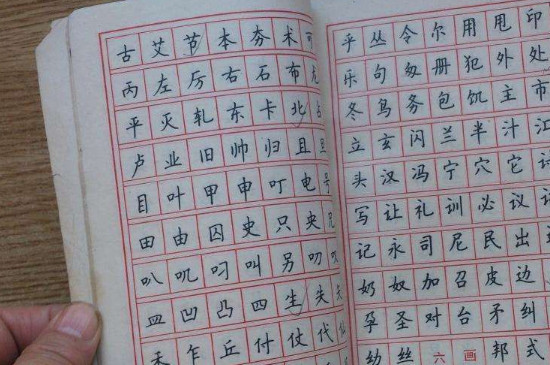 古艾节本夯术可
丙左厉右石布
平灭轧东卡北占
卢业旧帅归且旦
目叶甲申叮电号
田由囚史只央兄
叭叽叼叫另叨
皿凹凸四生失
禾乍丘付仗代仙
乎丛令尔用甩印
乐句匆册犯外处
冬鸟务包饥主市
立玄闪兰半汁汇
头汉冯宁穴它讨
写让礼训必议讯
记永司尼民出
奶奴加召皮边
孕圣对台矛纠
幼丝六画邦式